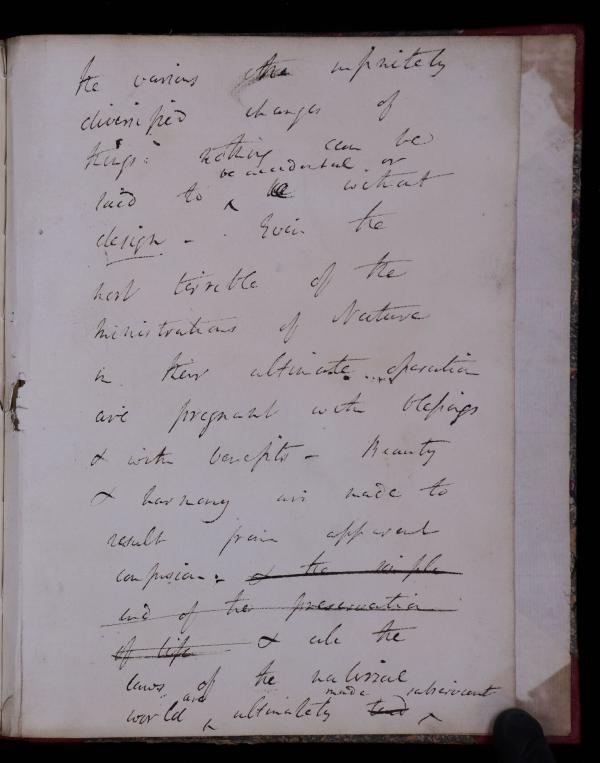 the various the infinitely
diversified changes of
things: nothing can be
be accidental or
said to ^ be without
design - Even the
most terrible of the
ministrations of Nature
in their ultimate operation
are pregnant with blessings
& with benefits - Beauty
& harmony are made to
result from apparent
confusion: & the simple
end of the preservation
of life & all the
laws of the material
are made subservient
world ^ ultimately tend ^